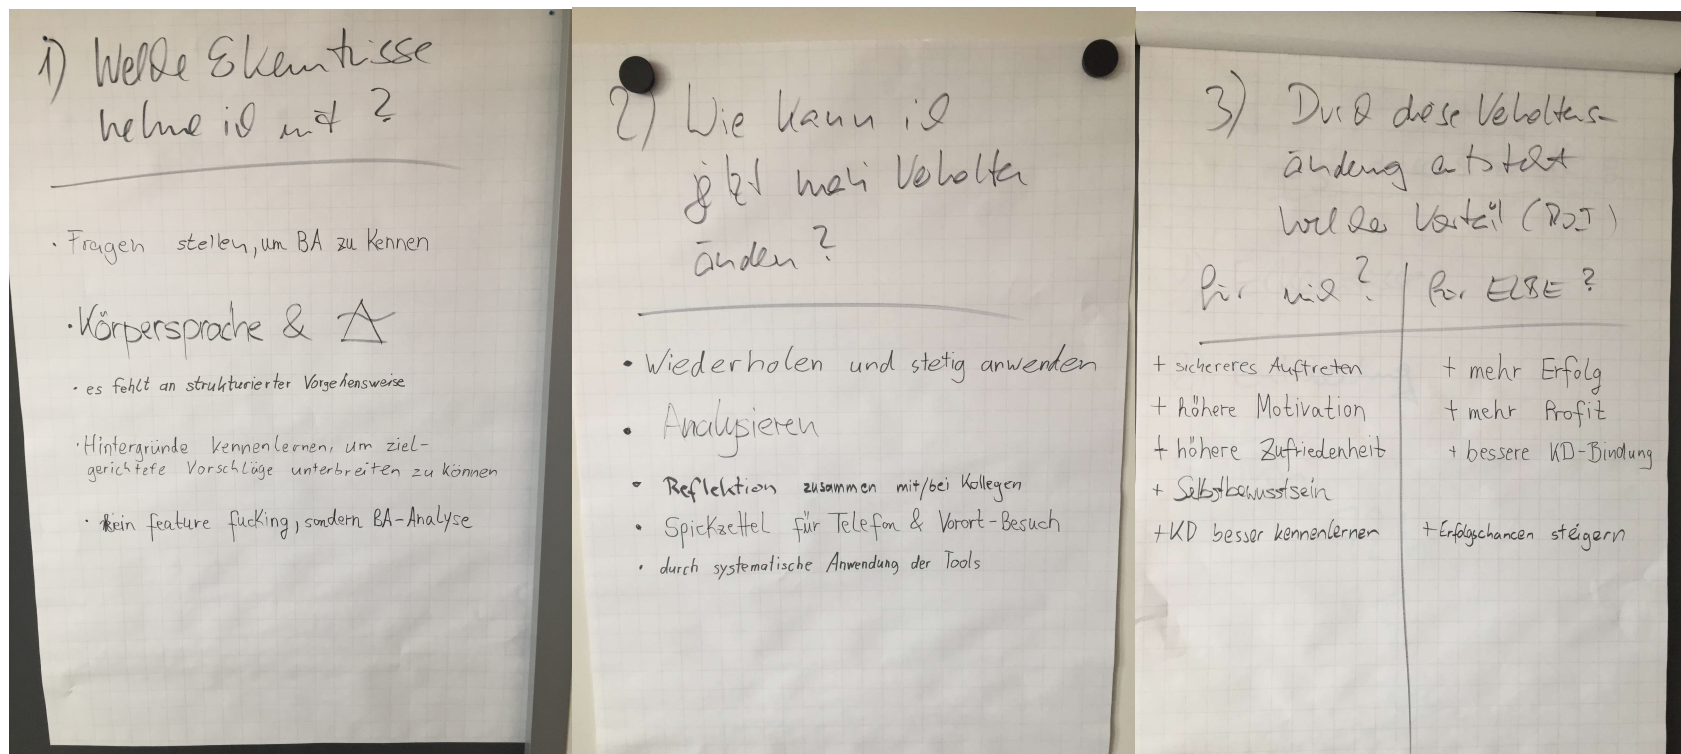 1) Welche Erkenntnisse
nehme ich mit?
· Fragen stellen, um BA zu kennen
· Körpersprache &
· es fehlt an strukturierter Vorgehensweise
· Hintergründe kennenlernen, um ziel-
gerichtete Vorschläge unterbreiten zu können
· kein feature fucking, sondern BA-Analyse
2) Wie kann ich
jetzt mein Verhalten
ändern?
• Wiederholen und stetig anwenden
• Analysieren
• Reflektion zusammen mit/bei Kollegen
• Spickzettel für Telefon & Vorort-Besuch
• durch systematische Anwendung der Tools
3) Durch diese Verhaltens-
änderung entsteht
welcher Vorteil (ROI)
für mich? für ELBE?
+ sichereres Auftreten
+ höhere Motivation
+ höhere Zufriedenheit
+ Selbstbewusstsein
+ KD besser kennenlernen
+ mehr Erfolg
+ mehr Profit
+ bessere KD-Bindung
+ Erfolgschancen steigern